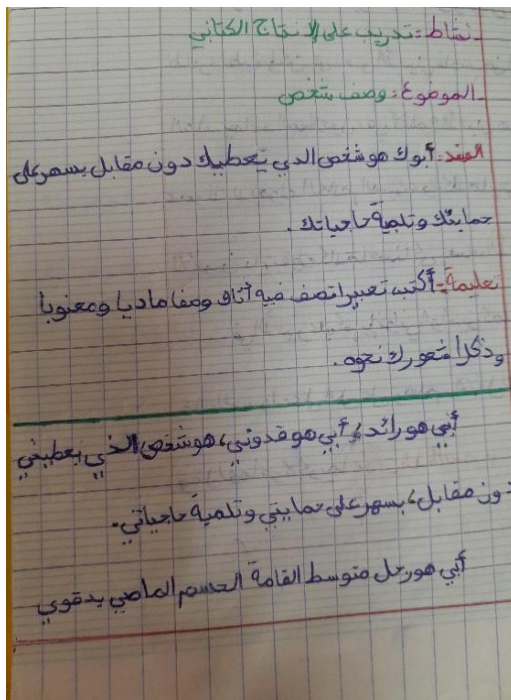 نشاط: تدريب على الإنتاج الكتابي
الموضوع: وصف شخص
السند: أبوك هو شخص الدي يعطيك دون مقابل يسهر على
حمايتك و تلبية حاجياتك.
تعليمة: أكتب تعبيرا تصف فيه أباك وصفا ماديا ومعنويا
وذكرا شعورك نحوه.
أبي هو رائد، أبي هو قدوتي، هو شخص الذي يعطيني
دون مقابل، يسهر على حمايتي و تلبية حاجياتي.
أبي هو رجل متوسط القامة الجسم الماضي يدقوي